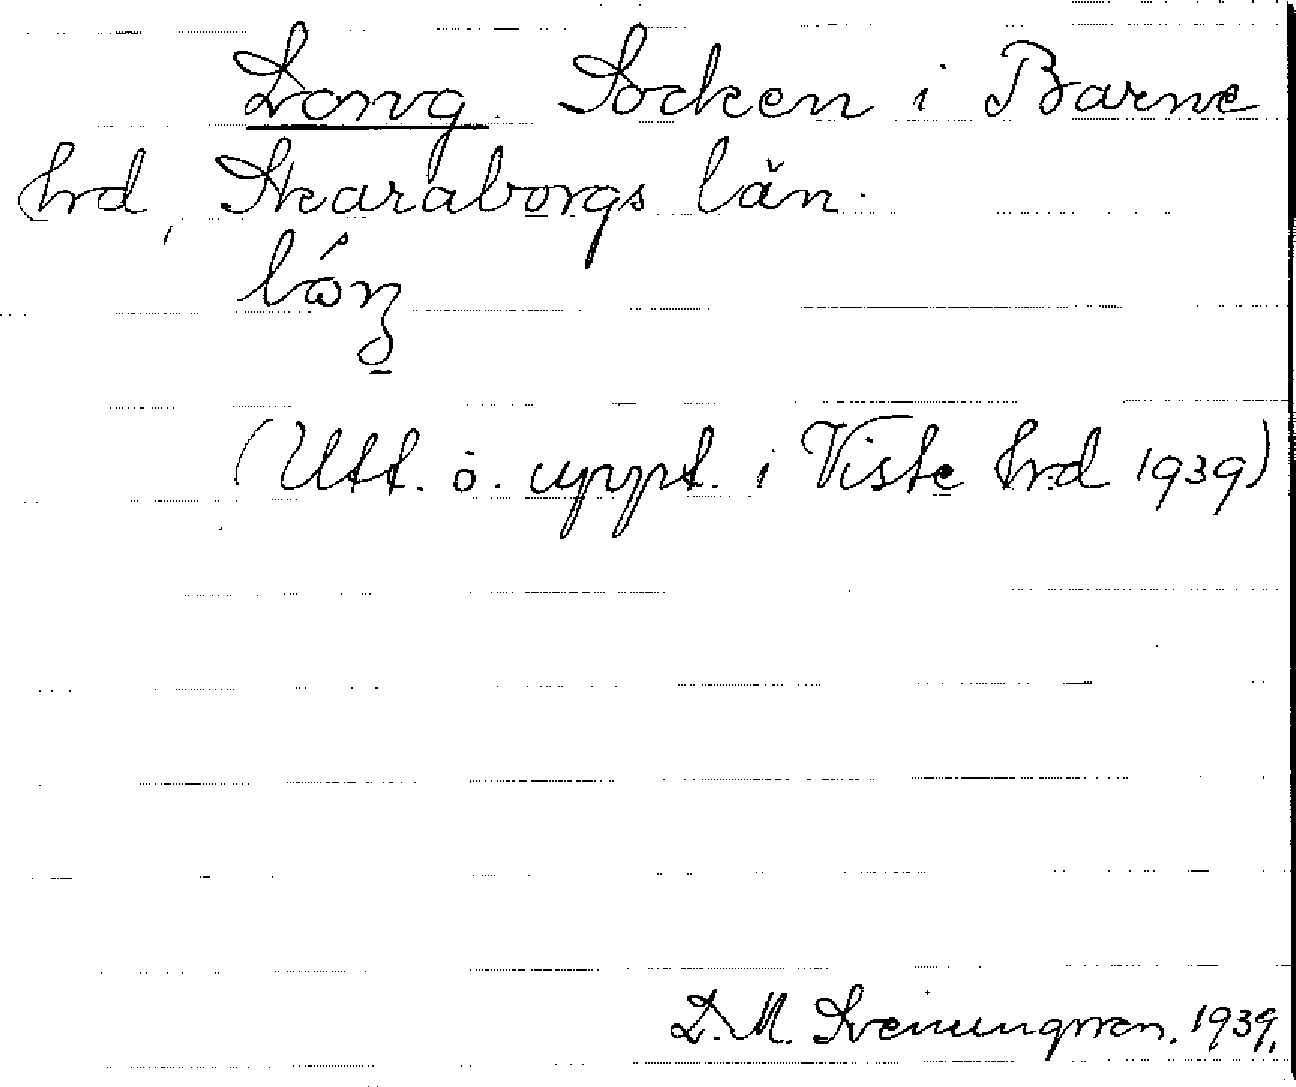 Long Socken i Barne
hrd, Skaraborgs län.
lóŋ
(Utt. o. uppt. i Viste hrd 1939)
D. M. Svenungsson. 1939.